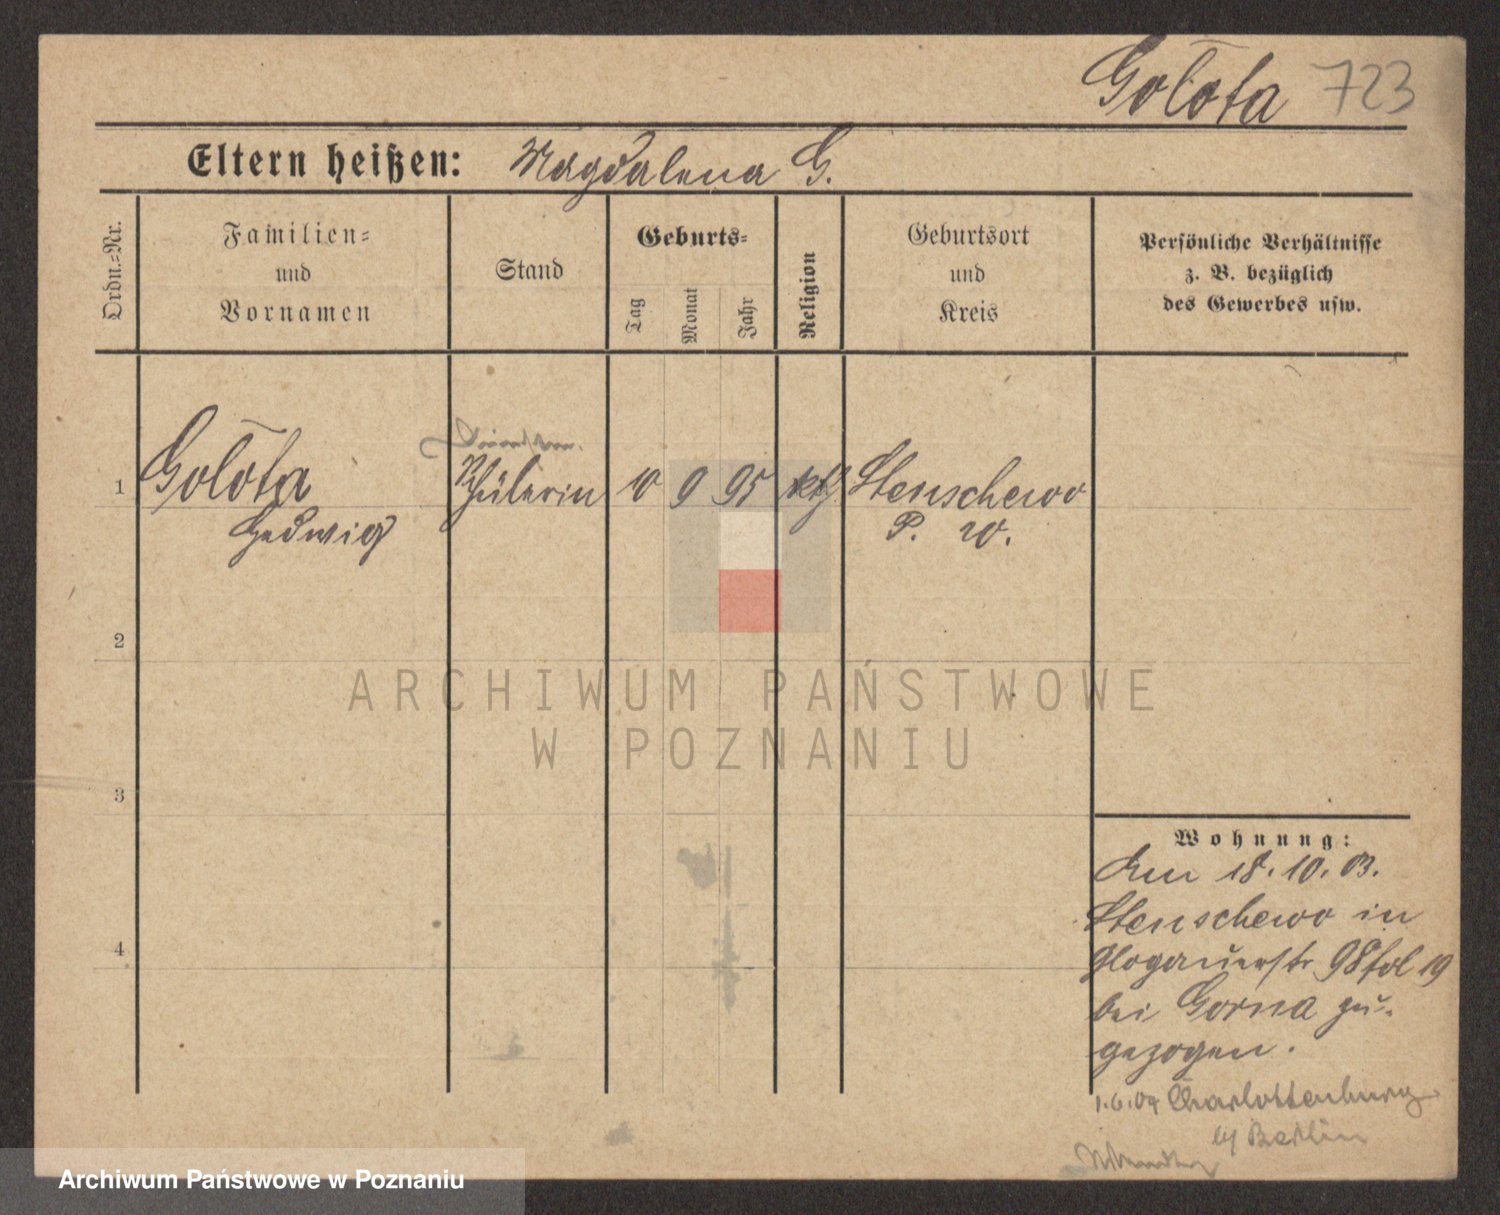 Golota 723
Eltern heißen: Magdalena G.
Ordn.-Nr.
Familien-
und
Vornamen
Stand
Geburts-
Tag
Monat
Jahr
Religion
Geburtsort
und
Kreis
Persönliche Verhältnisse
z. B. bezüglich
des Gewerbes usw.
1 Golota Schülerin 10 9 95 kth. Stenschewo
Hedwig P. W.
2
3
4
ARCHIWUM PAŃSTWOWE
W POZNANIU
Wohnung:
Am 18. 10. 03.
Stenschewo in
Glogauerstr 98 fol 19
bei Gorna zu-
gezogen.
1.6.04 Charlottenburg
b/ Berlin
Archiwum Państwowe w Poznaniu